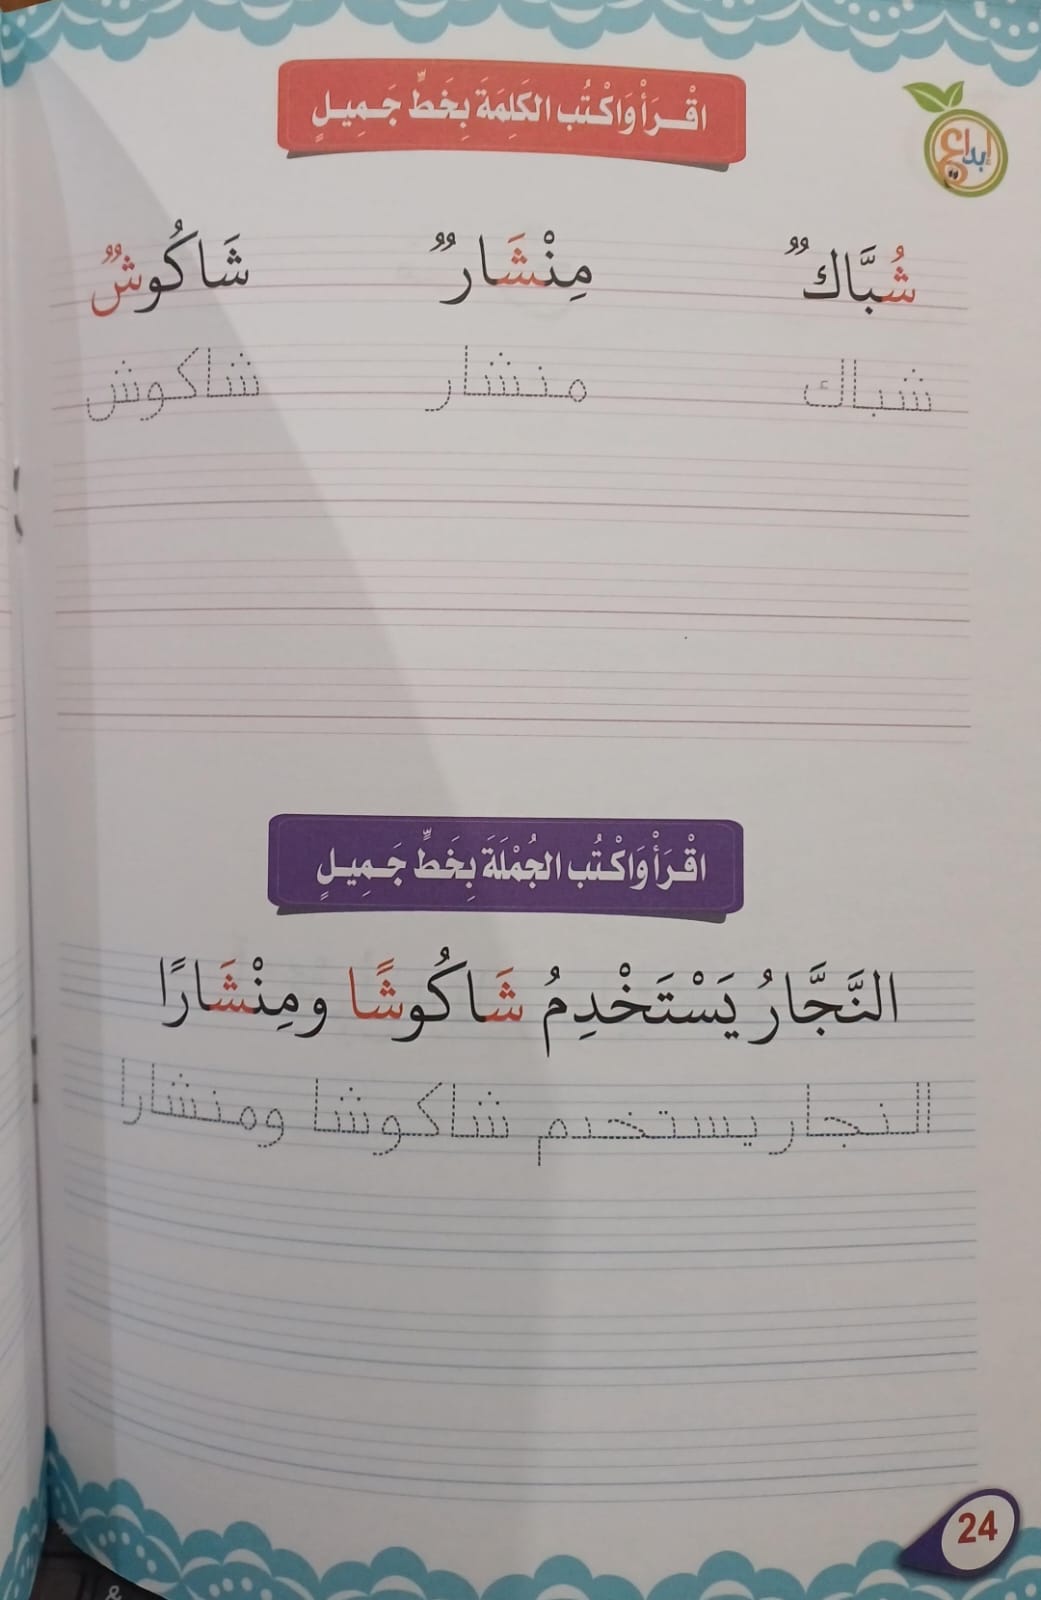 اقْرَأْ وَاكْتُب الكَلِمَةَ بِخَطٍّ جَمِيلٍ
إبداع
شُبَّاكٌ مِنْشَارٌ شَاكُوشٌ
شباك منشار شاكوش
اقْرَأْ وَاكْتُب الجُمْلَةَ بِخَطٍّ جَمِيلٍ
النَّجَّارُ يَسْتَخْدِمُ شَاكُوشًا ومِنْشَارًا
النجار يستخدم شاكوشا ومنشارا
24
&